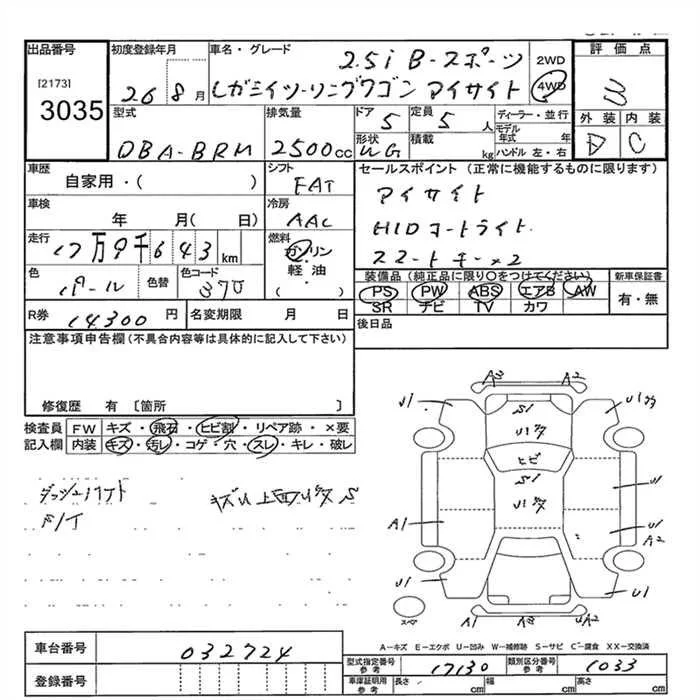 出品番号
[2173]
3035
初度登録年月
26年 8月
車名・グレード
2.5i B-スポーツ
レガシィツーリングワゴン アイサイト
2WD
4WD
評価点
3
外装 内装
D C
型式
DBA-BRM
排気量
2500cc
ドア 5
形状 WG
定員 5人
積載 kg
ディーラー・並行
モデル年式 年
ハンドル 左・右
車歴
自家用・( )
シフト
FAT
車検
年 月( 日)
冷房
AAC
走行
17万9千643km
燃料
ガソリン
軽・油
( )
色
パール
色替
色コード
37J
R券 14300円
名変期限 月 日
セールスポイント (正常に機能するものに限ります)
アイサイト
HIDコートライト
スマートキー×2
装備品(純正品に限り○をつけてください)
PS PW ABS エアB AW
SR ナビ TV カワ
新車保証書
有・無
後日品
注意事項申告欄(不具合内容等は具体的に記入して下さい)
修復歴 有 [箇所 ]
検査員 FW キズ・飛石・ヒビ割・リペア跡・×要
記入欄 内装 キズ・汚レ・コゲ・穴・スレ・キレ・破レ
A3 A2
U1 S1 U1
ヒビ
S1
A1 U1
U1 A2
U1 U1
A1 A3 A2
スペア
A-キズ E-エクボ U-凹み W-補修跡 S-サビ C-腐食 XX-交換済
車台番号 032724
登録番号
型式指定番号 参考 17130
類別区分番号 参考 1033
車庫証明用 参考 長さ cm 幅 cm 高さ cm